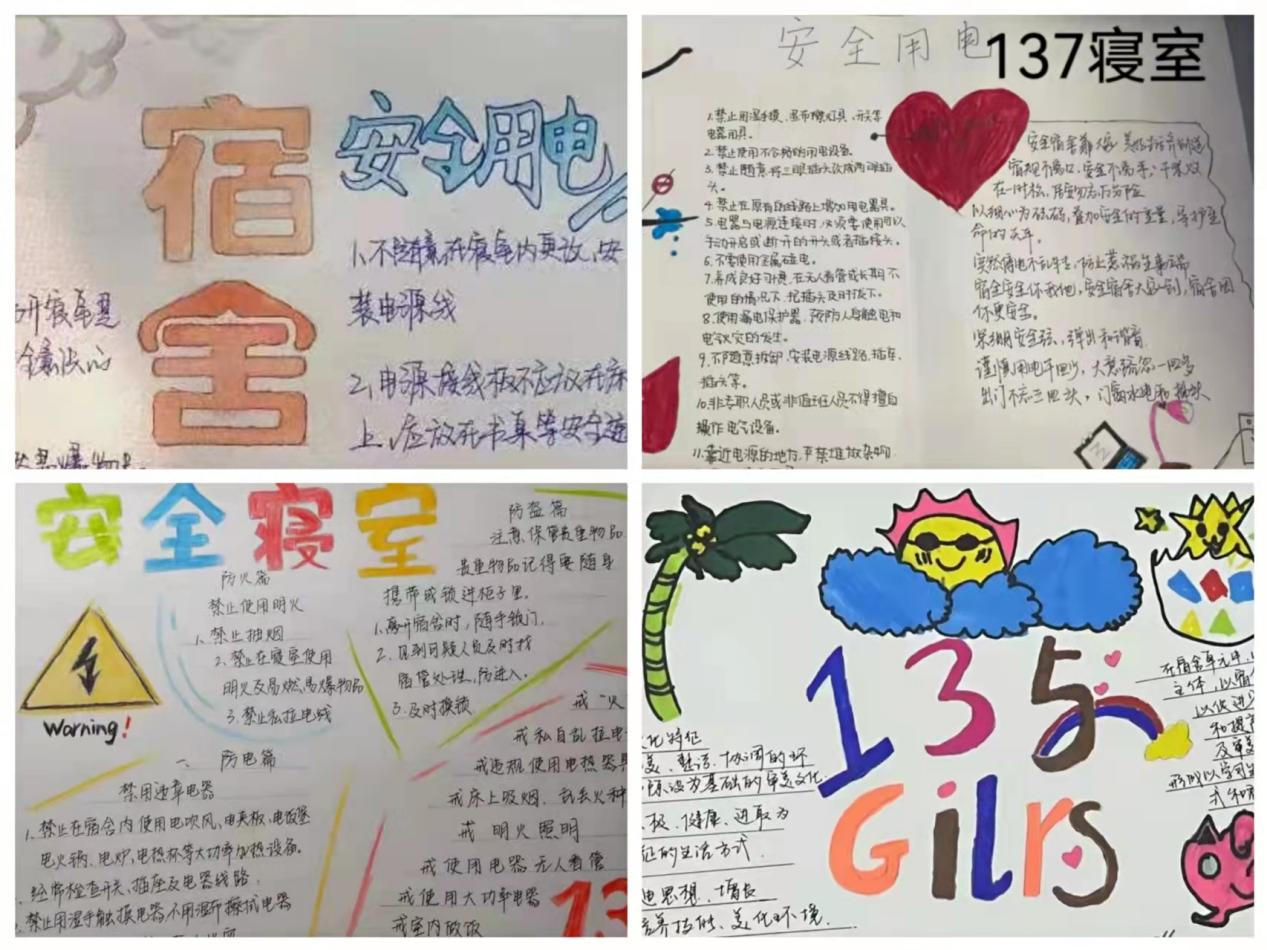 宿舍
安全用电
1、不随意在寝室内更改、安
装电源线
2、电源接线板不应放在床
上、应放在书桌等安全
137寝室
安全用电
1.禁止用湿手摸、湿布擦灯具、开关等
电器用具。
2.禁止使用不合格的用电设备。
3.禁止随意将三眼插头改成两眼插
头。
4.禁止在原有的线路上增加用电器具。
5.电器与电源连接时,必须要使用可以
手动开启或断开的开头或者插接头。
6.不要使用金属
7.养成良好习惯,在无人看管或长期不
使用的情况下,把插头及时拔下。
8.使用漏电保护器,预防人身触电和
电气火灾的发生。
9.不随意拆卸、安装电源线路、插座、
插头等。
10.非专职人员或非值班人员不得擅自
操作电气设备。
11.靠近电源的地方,严禁堆放杂物
以细心为砝码,叠加安全的重量,
命的天平。
突然停电不乱
宿舍安全你我他,安全宿舍
你更安全。
紧绷安全弦,弹出和谐音
谨慎用电
出门不忘三回头,门窗水电
安全寝室
防火篇
禁止使用明火
1、禁止抽烟
2.禁止在寝室使用
明火及易燃、易爆物品
3.禁止私拉电线
防盗篇
注意保管贵重物品
贵重物品记得要随身
携带或锁进柜子里。
1.离开宿舍时,随手锁门,
2.见到可疑人员及时找
宿管处理,防进入。
3.及时换锁
Warning!
一、防电篇
禁用违章电器
1.禁止在宿舍内使用电吹风、电夹板、电饭煲
电火锅、电炉、电热杯等大功率加热设备。
经常检查开关、插座及电器线路.
禁止用湿手触摸电器、不用湿布擦拭电器
戒"火
戒私自乱拉电
戒违规使用电热器具
戒床上吸烟、乱丢火种
戒明火照明
戒使用电器无人看管
戒使用大功率电器
戒室内做饭
13
135
Gilrs
化特征
美、整洁、协调的环
为基础的审美文化.
极、健康、进取为
征的生活方式.
思想、增长
培养技能、美化环境.
在宿舍单元中,
主体,以宿
以促进
和提
及审美
形成以学习